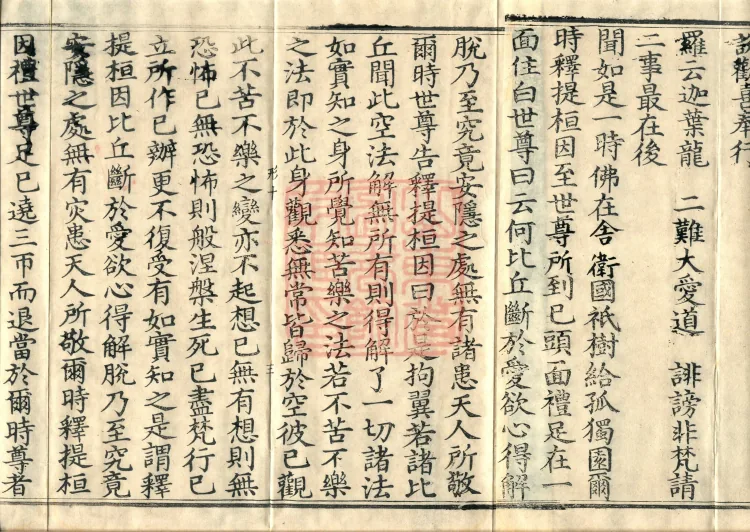 說歡喜奉行
羅云迦葉龍 二難大愛道 誹謗非梵請
二事最在後
聞如是一時佛在舍衛國祇樹給孤獨園爾
時釋提桓因至世尊所到已頭面禮足在一
面住白世尊曰云何比丘斷於愛欲心得解
脫乃至究竟安隱之處無有諸患天人所敬
爾時世尊告釋提桓因曰於是拘翼若諸比
丘聞此空法解無所有則得解了一切諸法
如實知之身所覺知苦樂之法若不苦不樂
之法即於此身觀悉無常皆歸於空彼已觀
形十 三
此不苦不樂之變亦不起想已無有想則無
恐怖已無恐怖則般涅槃生死已盡梵行已
立所作已辦更不復受有如實知之是謂釋
提桓因比丘斷於愛欲心得解脫乃至究竟
安隱之處無有災患天人所敬爾時釋提桓
因禮世尊足已遶三帀而退當於爾時尊者